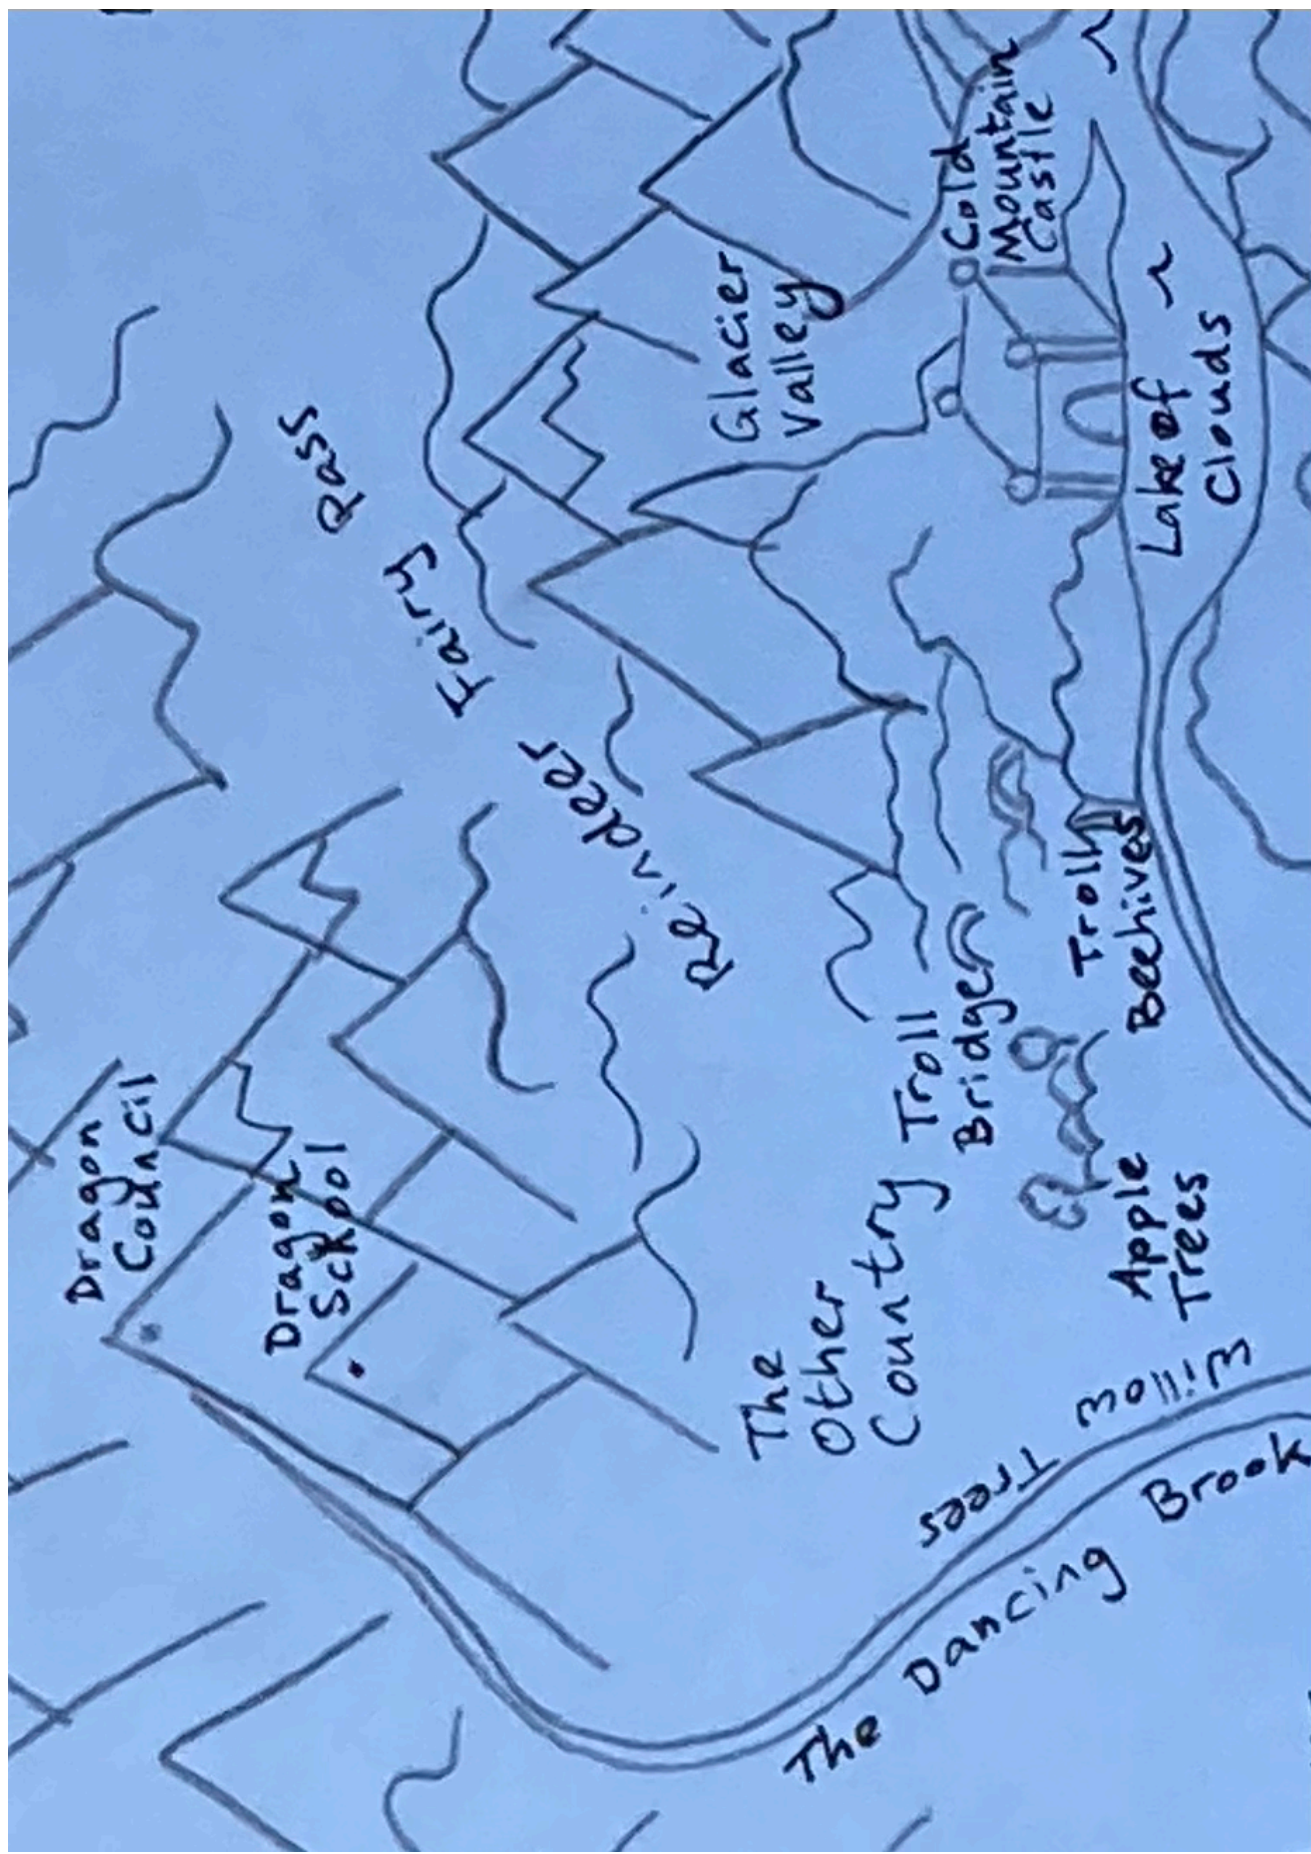 Dragon
Council
Dragon
School
Fairy Pass
Reindeer
Glacier
Valley
Cold
Mountain
Castle
Lake of
Clouds
The
Other
Country
Troll
Bridge
Troll
Beehives
Apple
Trees
Willow
Trees
The Dancing Brook